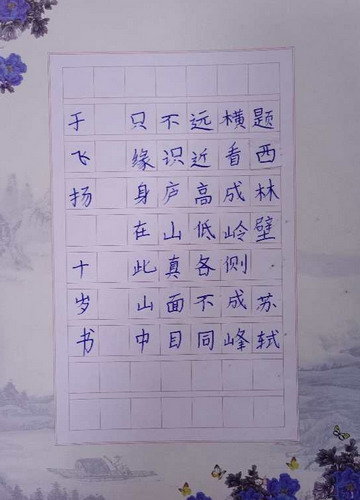 题西林壁 苏轼
横看成岭侧成峰
远近高低各不同
不识庐山真面目
只缘身在此山中
于飞扬 十岁书